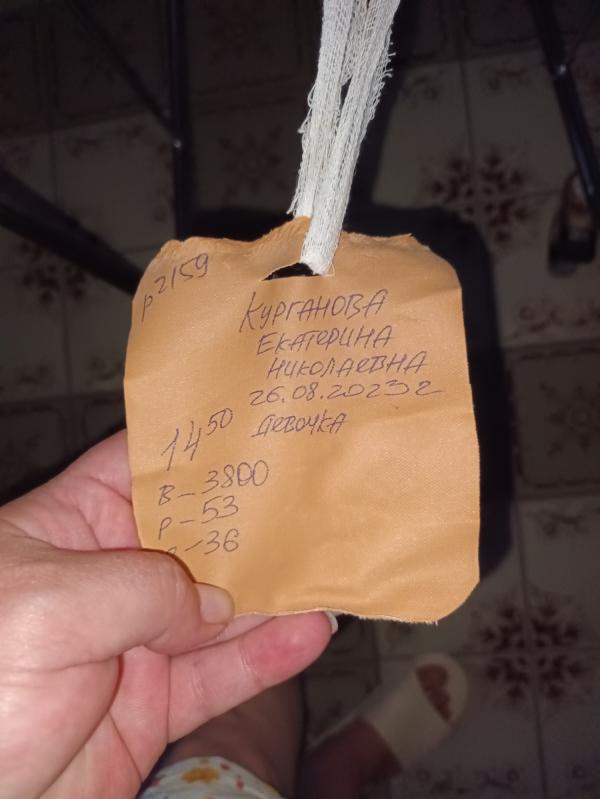 р2159
КУРГАНОВА
ЕКАТЕРИНА
НИКОЛАЕВНА
26.08.2023г
14 50 девочка
В – 3800
Р – 53
– 36